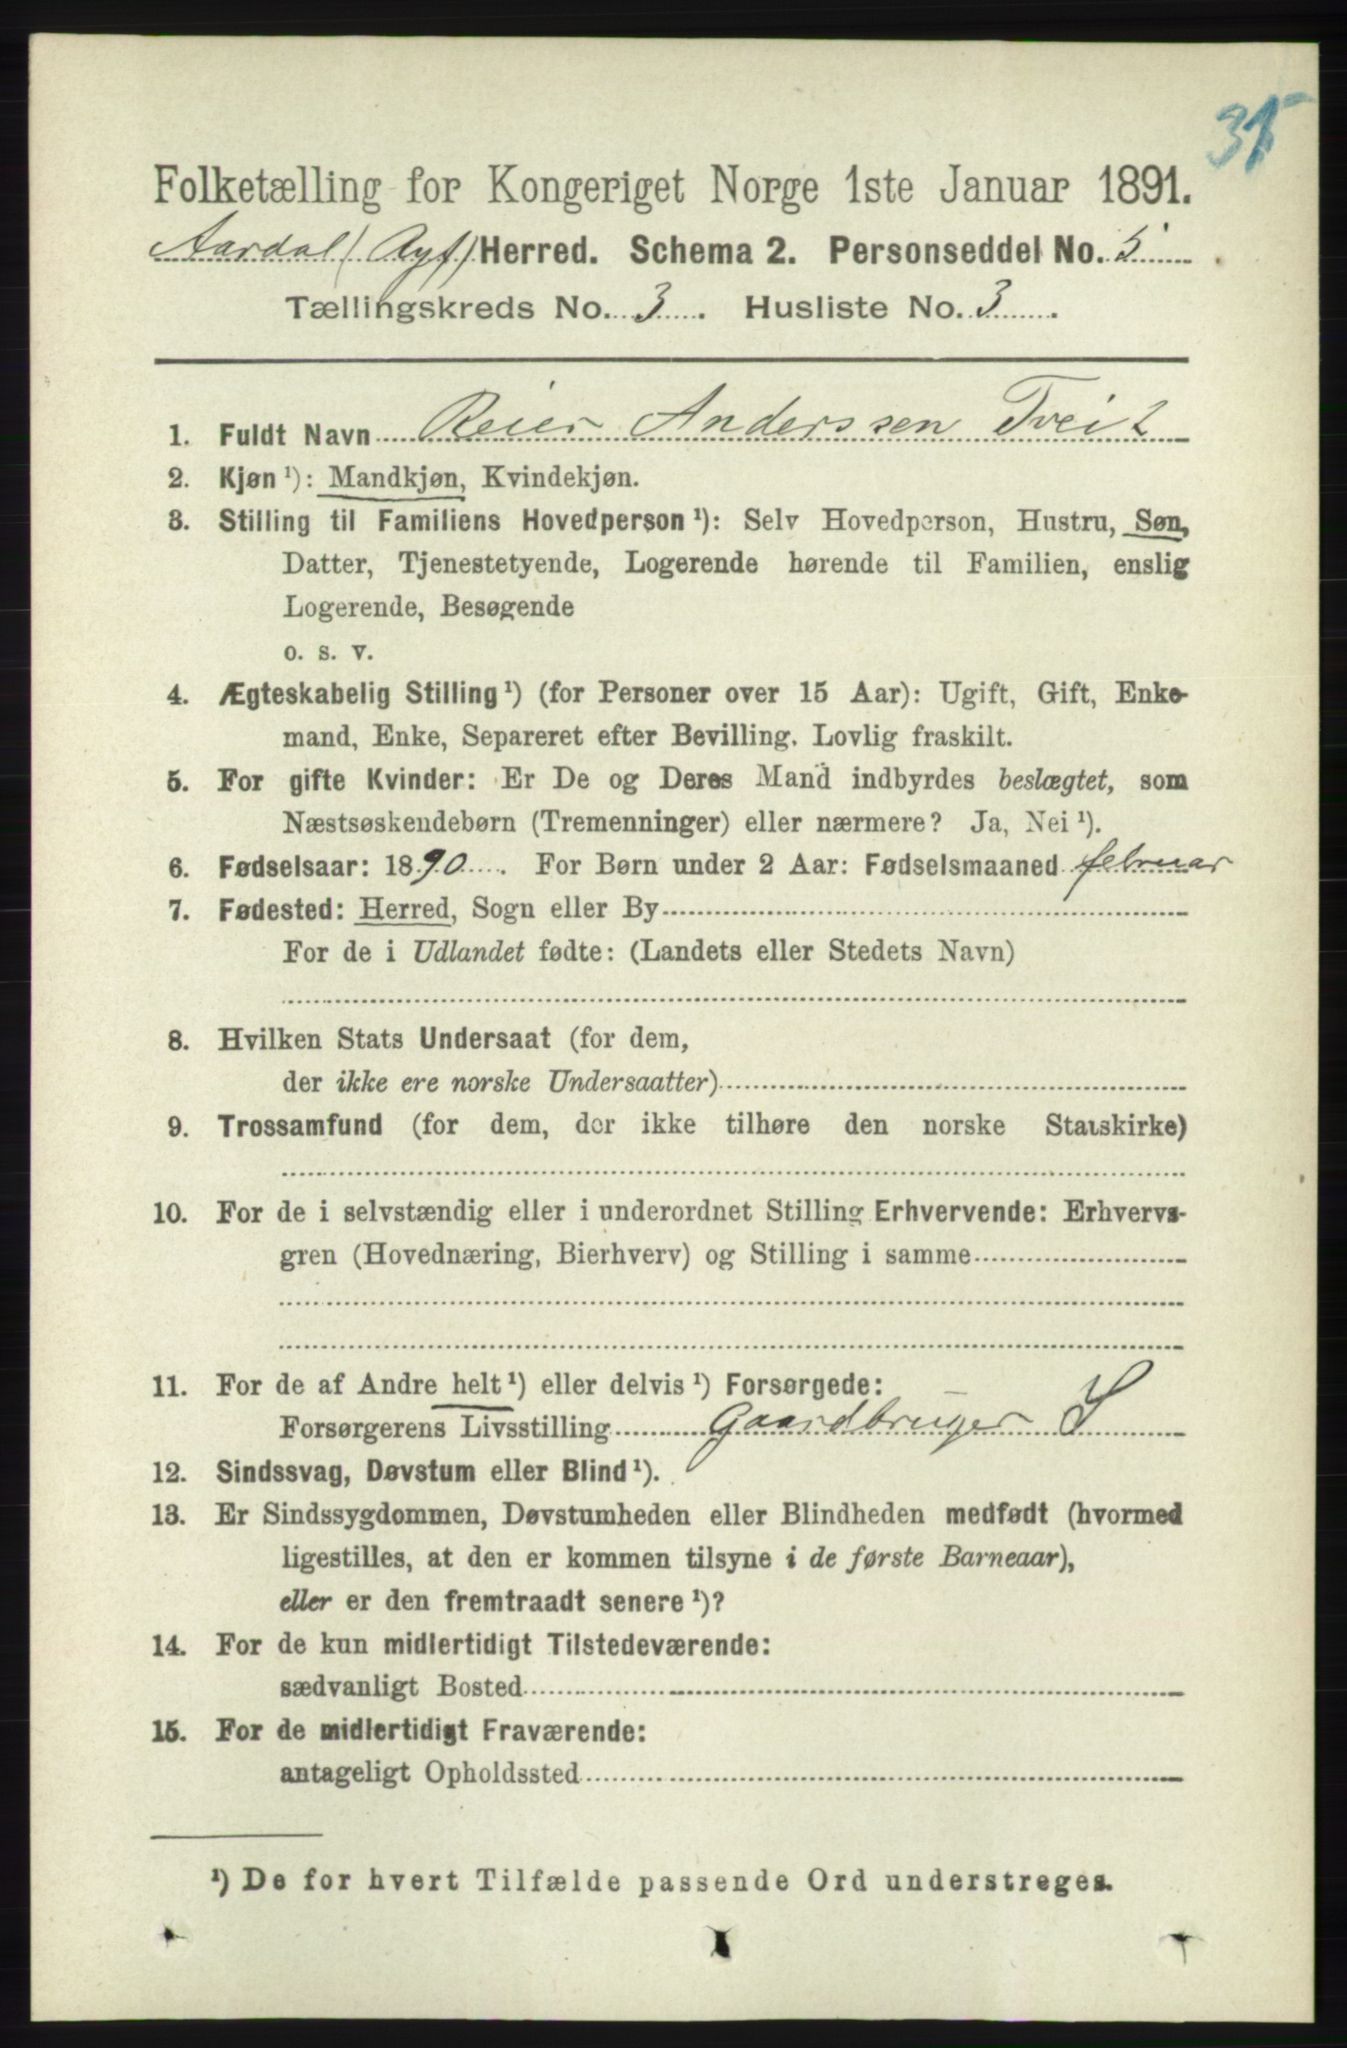 35
Folketælling for Kongeriget Norge 1ste Januar 1891.
Aardal (Ryf) Herred. Schema 2. Personseddel No. 5
Tællingskreds No. 3. Husliste No. 3.
1. Fuldt Navn Reier Anderssen Tveit
2. Kjøn ¹): Mandkjøn, Kvindekjøn.
3. Stilling til Familiens Hovedperson ¹): Selv Hovedperson, Hustru, Søn,
Datter, Tjenestetyende, Logerende hørende til Familien, enslig
Logerende, Besøgende
o. s. v.
4. Ægteskabelig Stilling ¹) (for Personer over 15 Aar): Ugift, Gift, Enke-
mand, Enke, Separeret efter Bevilling. Lovlig fraskilt.
5. For gifte Kvinder: Er De og Deres Mand indbyrdes beslægtet, som
Næstsøskendebørn (Tremenninger) eller nærmere? Ja, Nei ¹).
6. Fødselsaar: 1890. For Børn under 2 Aar: Fødselsmaaned februar
7. Fødested: Herred, Sogn eller By
For de i Udlandet fødte: (Landets eller Stedets Navn)
8. Hvilken Stats Undersaat (for dem,
der ikke ere norske Undersaatter)
9. Trossamfund (for dem, der ikke tilhøre den norske Statskirke)
10. For de i selvstændig eller i underordnet Stilling Erhvervende: Erhvervs-
gren (Hovednæring, Bierhverv) og Stilling i samme
11. For de af Andre helt ¹) eller delvis ¹) Forsørgede:
Forsørgerens Livsstilling Gaardbruger S
12. Sindssvag, Døvstum eller Blind ¹).
13. Er Sindssygdommen, Døvstumheden eller Blindheden medfødt (hvormed
ligestilles, at den er kommen tilsyne i de første Barneaar),
eller er den fremtraadt senere ¹)?
14. For de kun midlertidigt Tilstedeværende:
sædvanligt Bosted
15. For de midlertidigt Fraværende:
antageligt Opholdssted
¹) De for hvert Tilfælde passende Ord understreges.